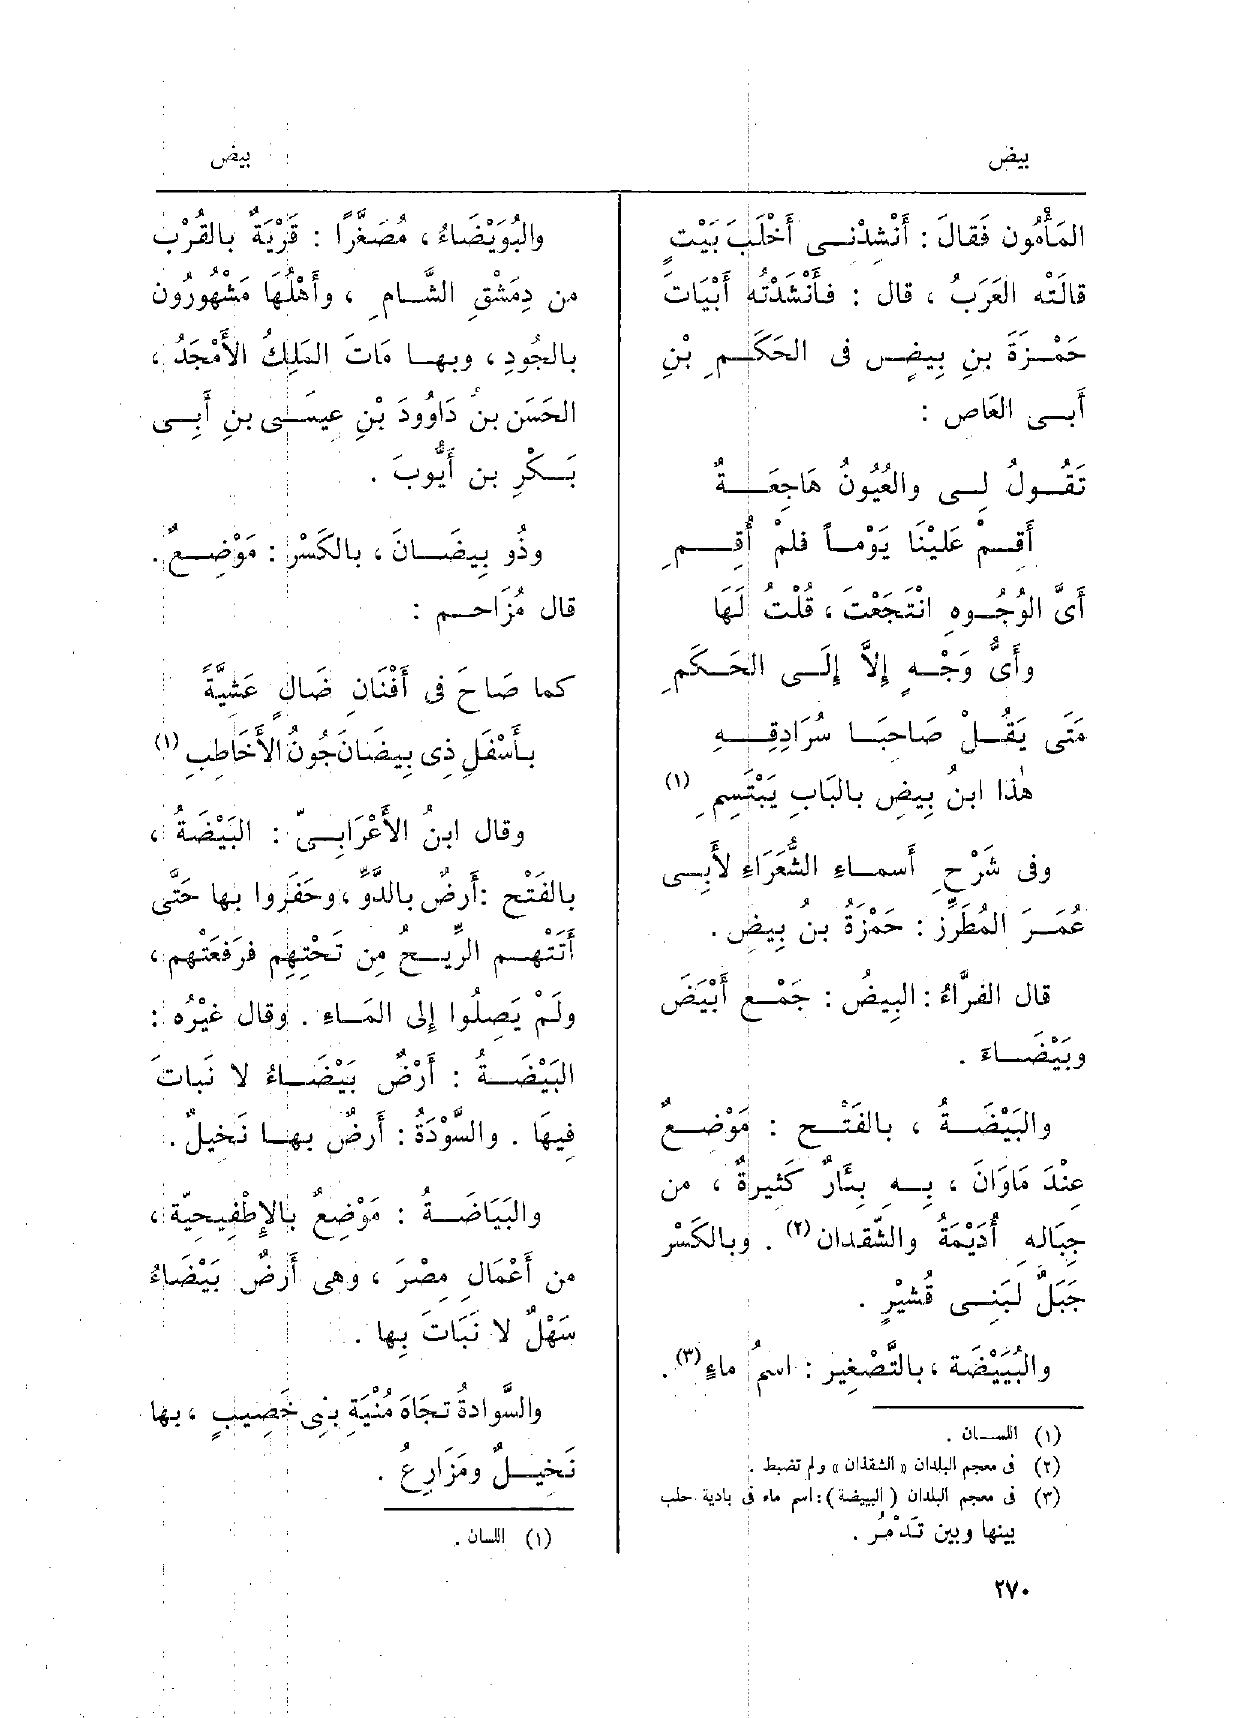 بيض
بيض
المَأْمُون فَقالَ : أَنْشِدْنِى أَخْلَبَ بَيْتٍ
قالَته العَرَبُ ، قال : فأَنْشَدْتُه أَبْيَاتَ
حَمْزَةَ بنِ بِيضٍ فى الحَكَمِ بْنِ
أَبى العَاص :
تَقُولُ لِى والعُيُونُ هَاجِعَةٌ
أَقِمْ عَلَيْنَا يَوْماً فلمْ أُقِمِ
أَىَّ الوُجُوهِ انْتَجَعْتَ ، قُلْتُ لَهَا
وأَىُّ وَجْهٍ إِلاَّ إِلَى الحَكَمِ
مَتَى يَقُلْ صَاحِبَا سُرَادِقِهِ
هٰذا ابنُ بِيضٍ بالبَابِ يَبْتَسِمِ (١)
وفى شَرْحِ أَسماءِ الشُّعَرَاءِ لأَبِى
عُمَرَ المُطَرِّزِ : حَمْزَةُ بنُ بِيضٍ .
قال الفَرَّاءُ : البِيضُ : جَمْع أَبْيَضَ
وبَيْضَاءَ .
والبَيْضَةُ ، بالفَتْحِ : مَوْضِعٌ
عِنْدَ مَاوَانَ ، بِهِ بِئَارٌ كَثِيرَةٌ ، من
جِبَالِهِ أُدَيْمَةُ والشَّقِذَان (٢) . وبالكَسْرِ
جَبَلٌ لِبَنِى قُشَيْرٍ .
والبُيَيْضَةُ ، بالتَّصْغِير : اسمُ ماءٍ (٣) .
(١) اللسان .
(٢) فى معجم البلدان « الشقذان » ولم تضبط .
(٣) فى معجم البلدان ( البيضة ) : اسم ماء فى بادية حلب
بينها وبين تَدْمُر .
والبُوَيْضَاءُ ، مُصَغَّرًا : قَرْيَةٌ بالقُرْبِ
من دِمَشْقِ الشَّامِ ، وأَهْلُهَا مَشْهُورُون
بالجُودِ ، وبها مَاتَ المَلِكُ الأَمْجَدُ ،
الحَسَن بنُ دَاوُودَ بْنِ عِيسَى بنِ أَبِى
بَكْرِ بن أَيُّوبَ .
وذُو بِيضَانَ ، بالكَسْرِ : مَوْضِعٌ .
قال مُزَاحِم :
كما صَاحَ فى أَفْنَانِ ضَالٍ عَشِيَّةً
بأَسْفَلِ ذِى بِيضَانَ جُونُ الأَخَاطِبِ (١)
وقال ابنُ الأَعْرَابِىّ : البَيْضَةُ ،
بالفَتْحِ : أَرضٌ بالدَّوِّ ، وحَفَروا بها حَتَّى
أَتَتْهم الرِّيحُ مِن تَحْتِهِم فرَفَعَتْهم ،
ولَمْ يَصِلُوا إِلى المَاءِ . وقال غَيْرُه :
البَيْضَةُ : أَرْضٌ بَيْضَاءُ لا نَباتَ
فِيهَا . والسَّوْدَةُ : أَرضٌ بها نَخِيلٌ .
والبَيَاضَةُ : مَوْضِعٌ بالإِطْفِيحِيَّة ،
من أَعْمَالِ مِصْرَ ، وهى أَرضٌ بَيْضَاءُ
سَهْلٌ لا نَبَاتَ بِها .
والسَّوادةُ تجَاهَ مُنْيَةِ بنِى خَصِيبٍ ، بها
نَخِيلٌ ومَزَارِعُ .
(١) اللسان .
٢٧٠